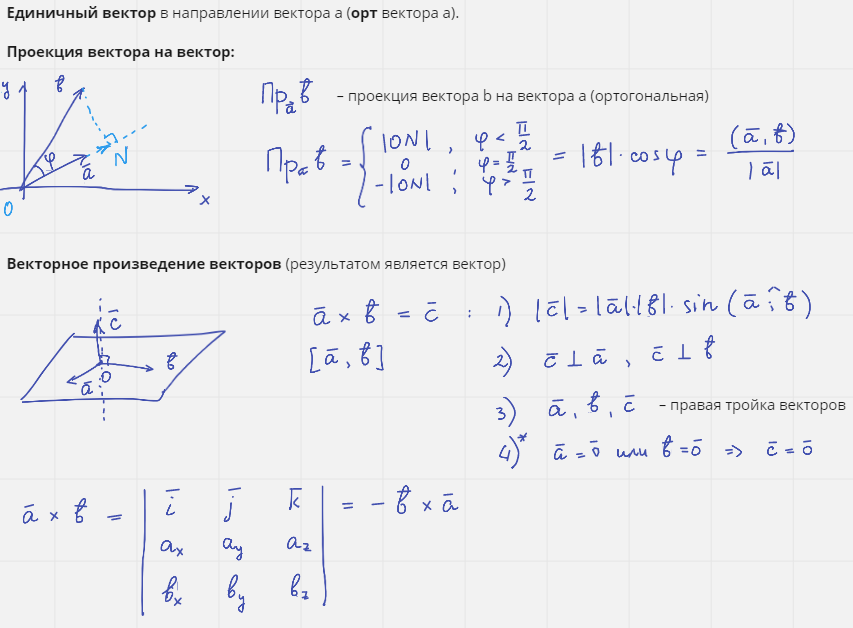 Единичный вектор в направлении вектора a (орт вектора a).
Проекция вектора на вектор:
y b̄ φ ā N O x
Пр_ā b̄ – проекция вектора b на вектор a (ортогональная)
Пр_ā b̄ = { |ON| , φ < π/2
0 , φ = π/2
-|ON| , φ > π/2 = |b̄| · cos φ = (ā, b̄) / |ā|
Векторное произведение векторов (результатом является вектор)
c̄ b̄ O ā
ā × b̄ = c̄ : 1) |c̄| = |ā|·|b̄| · sin (ā ;^ b̄)
[ā, b̄] 2) c̄ ⊥ ā , c̄ ⊥ b̄
3) ā , b̄ , c̄ – правая тройка векторов
4)* ā = 0̄ или b̄ = 0̄ => c̄ = 0̄
ā × b̄ = | ī j̄ k̄ | = - b̄ × ā
a_x a_y a_z
b_x b_y b_z